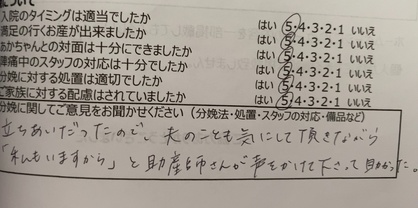 ついて
入院のタイミングは適当でしたか はい 5・4・3・2・1 いいえ
満足の行くお産が出来ましたか はい 5・4・3・2・1 いいえ
あかちゃんとの対面は十分にできましたか はい 5・4・3・2・1 いいえ
陣痛中のスタッフの対応は十分でしたか はい 5・4・3・2・1 いいえ
分娩に対する処置は適切でしたか はい 5・4・3・2・1 いいえ
ご家族に対する配慮はされていましたか はい 5・4・3・2・1 いいえ
分娩に関してご意見をお聞かせください（分娩法・処置・スタッフの対応・備品など）
立ちあいだったので、夫のことも気にして頂きながら
「私もいますから」と助産師さんが声をかけて下さって助かった。